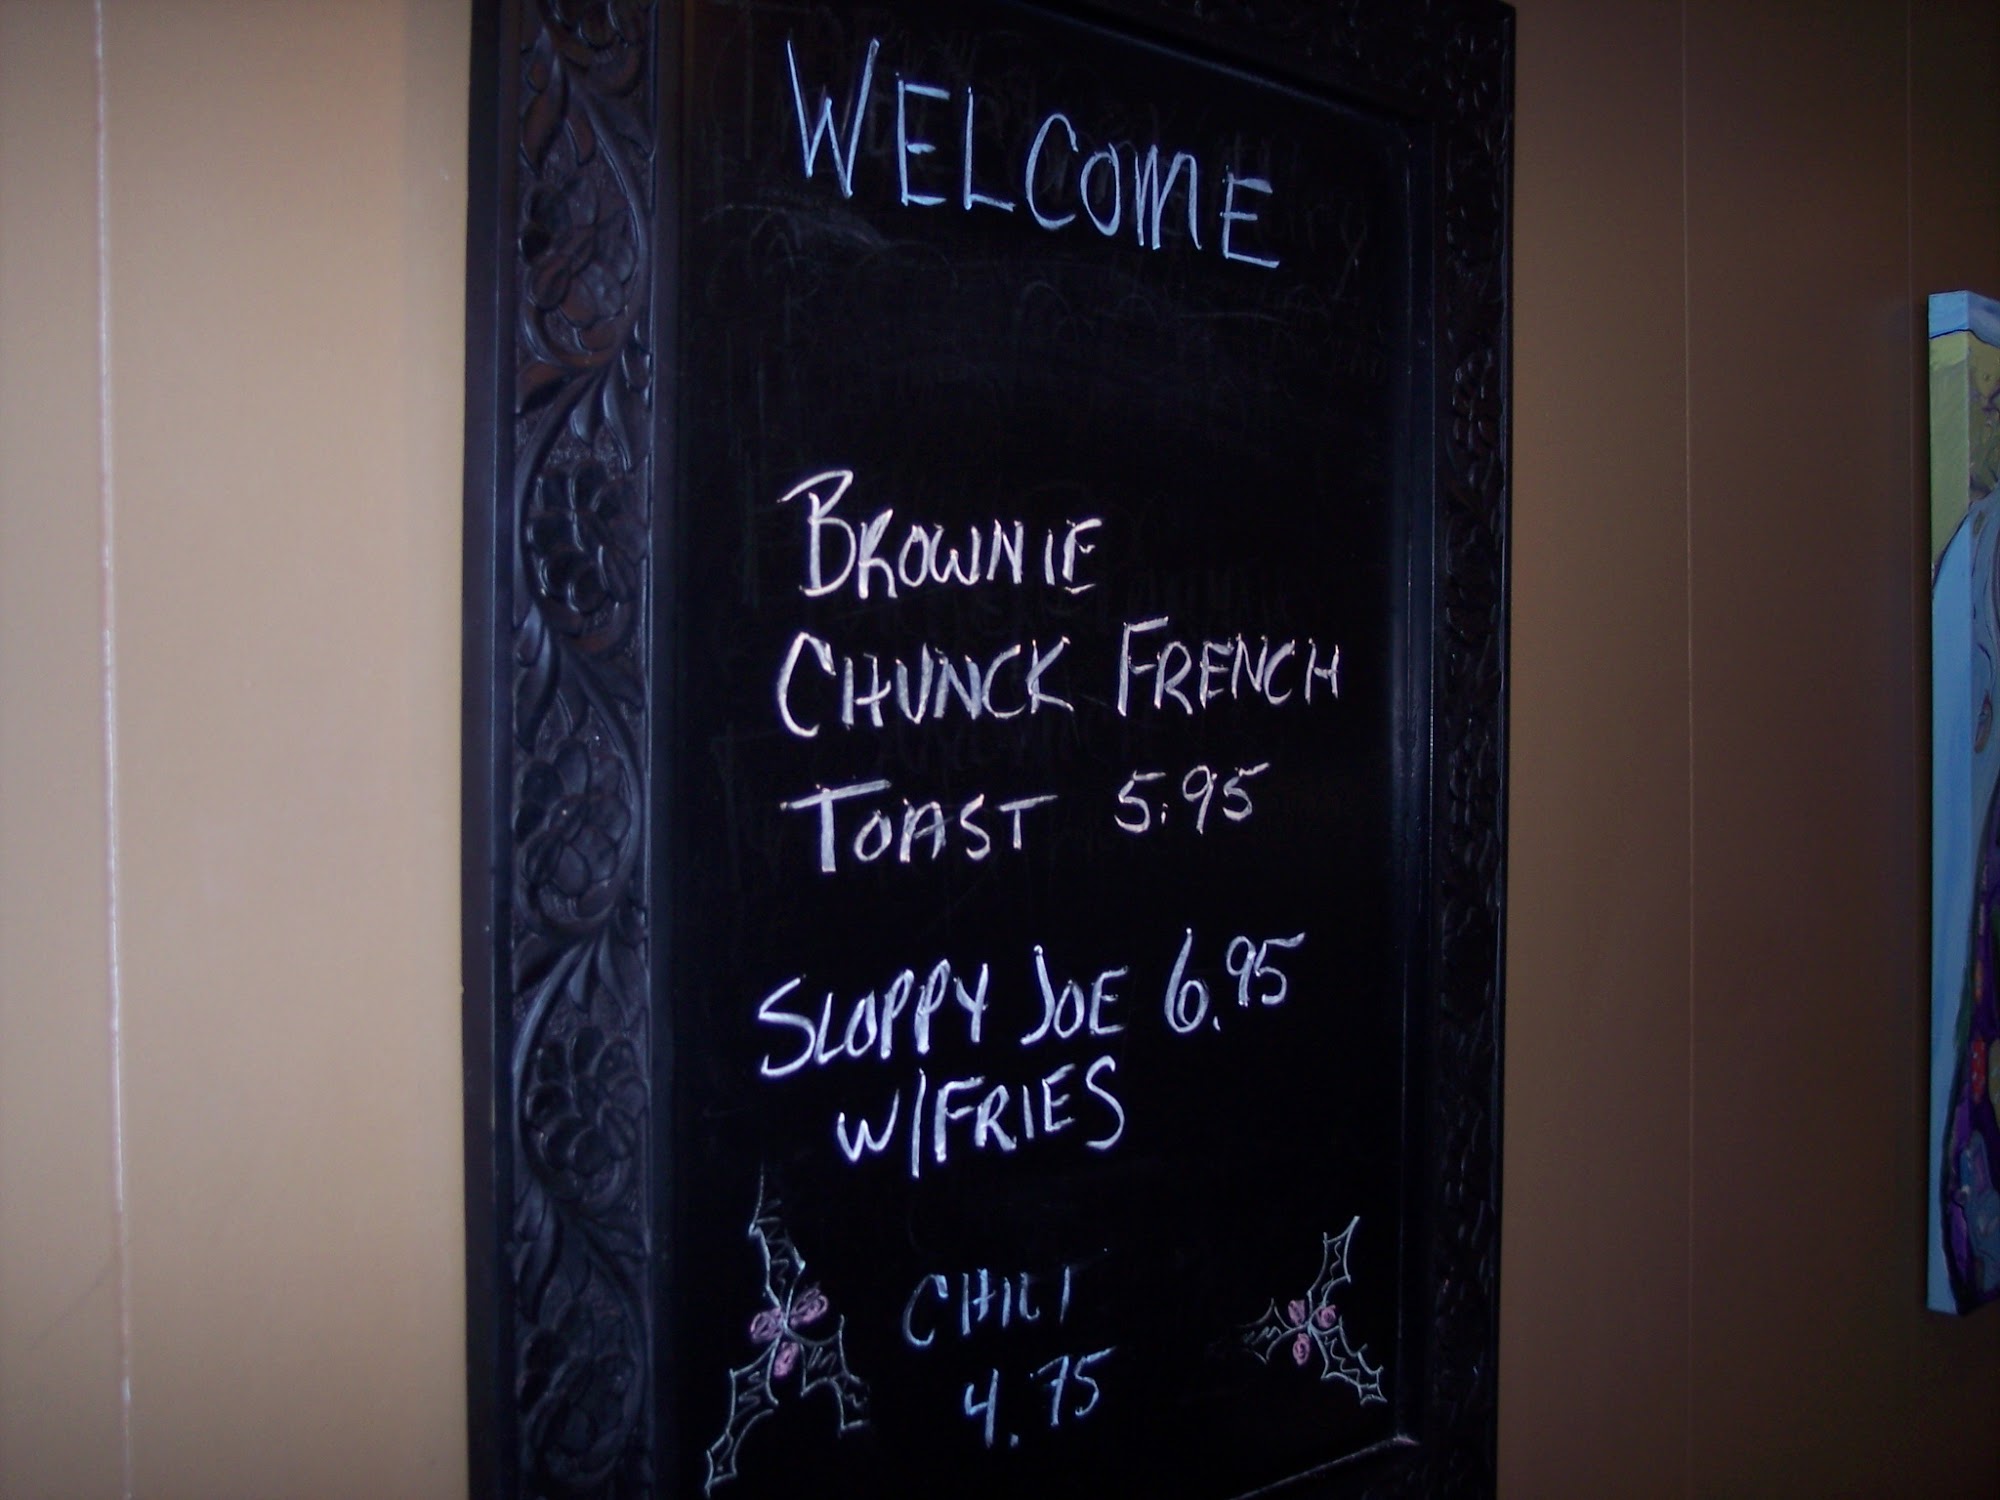 WELCOME
BROWNIE
CHUNCK FRENCH
TOAST 5.95
SLOPPY JOE 6.95
W/FRIES
CHILI
4.75